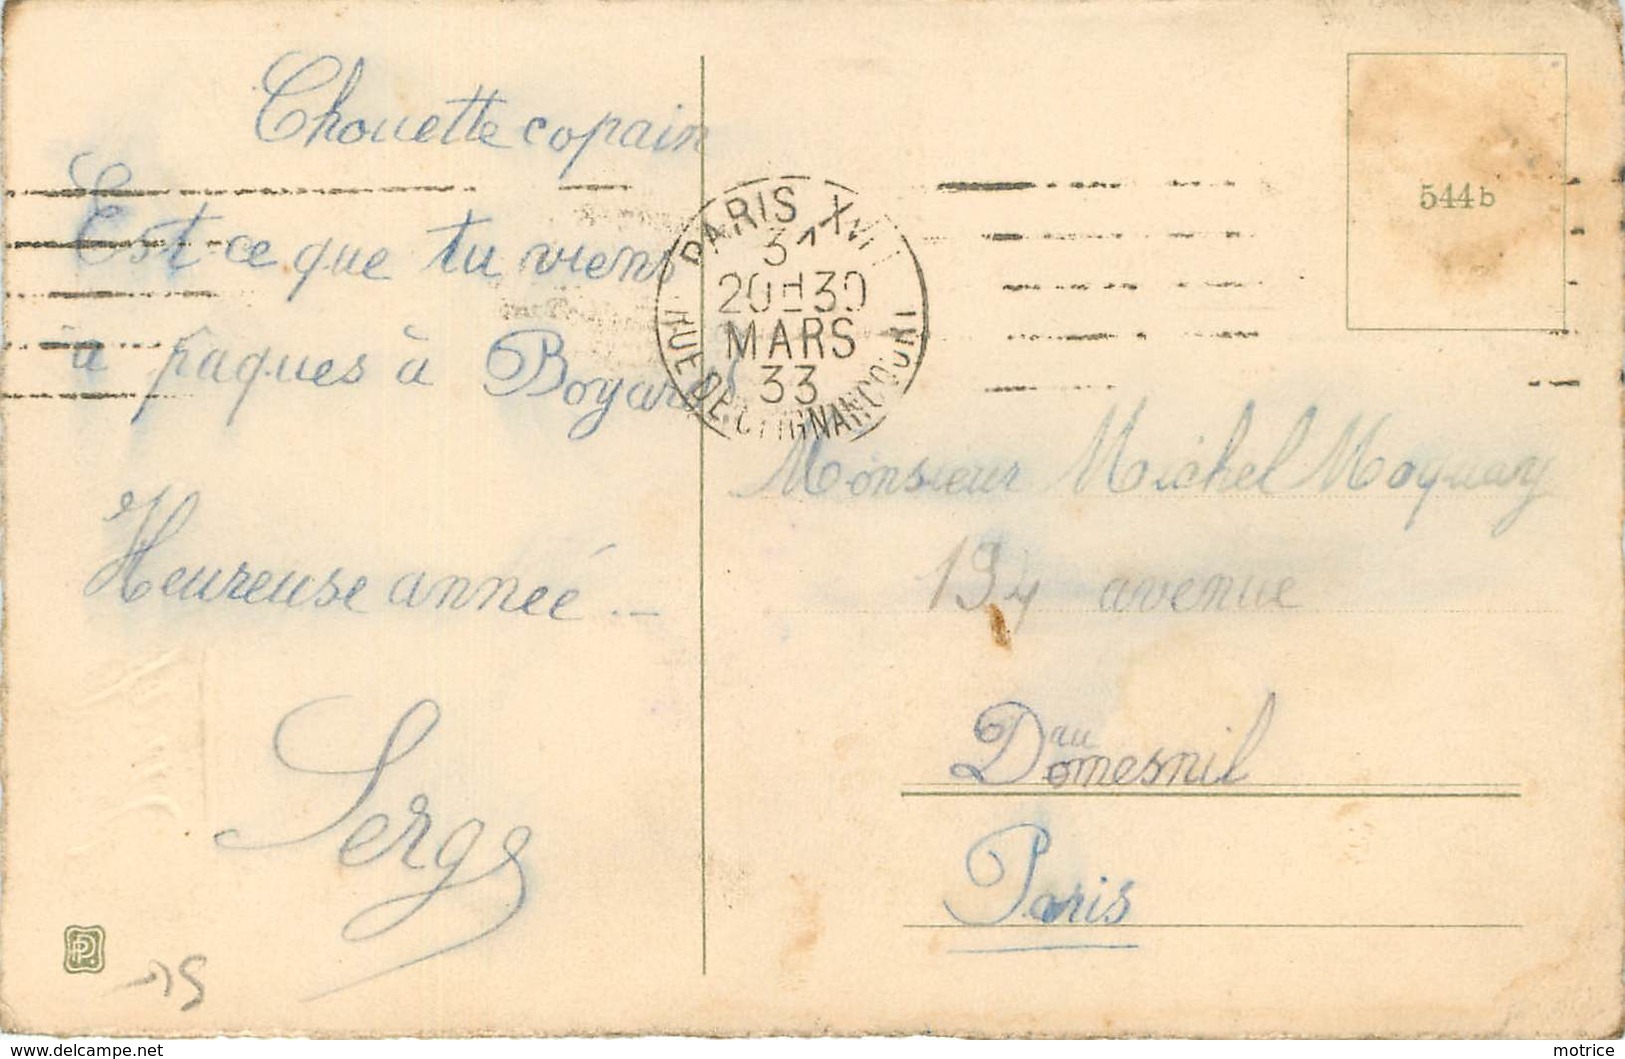 Chouette copain
Est-ce que tu viens
à pâques à Boyard
Heureuse année. –
Serge
PARIS XVIII
31
20H30
MARS
33
RUE DE CLIGNANCOURT
544b
Monsieur Michel Moquay
194 avenue
au
Domesnil
Paris
www.delcampe.net
motrice